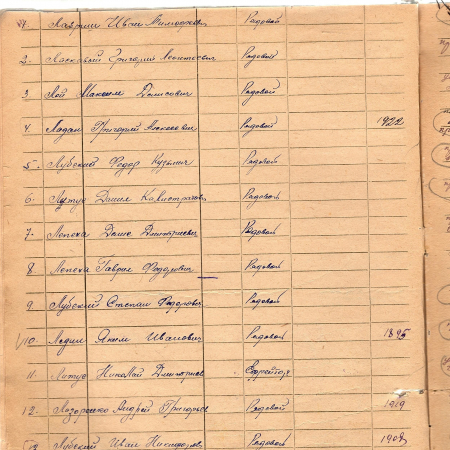 1. Лаврин Иван Тимофеевич Рядовой
2. Ласкавый Григорий Леонтьевич Рядовой
3 Лой Максим Денисович Рядовой
4. Ладан Григорий Алексеевич Рядовой 1922
5. Лубский Федор Кузьмич Рядовой
6. Данил Калистратович Рядовой
7. Лепеха Денис Дмитриевич Рядовой
8 Лепеха Гаврил Федорович Рядовой
9 Лубский Степан Федорович Рядовой
10. Ладин Яким Иванович Рядовой 1895
11. Николай Дмитриев Ефрейтор
12. Лазоренко Андрей Григорьев Рядовой 1919
13 Лубский Иван Никифоров Рядовой 1909